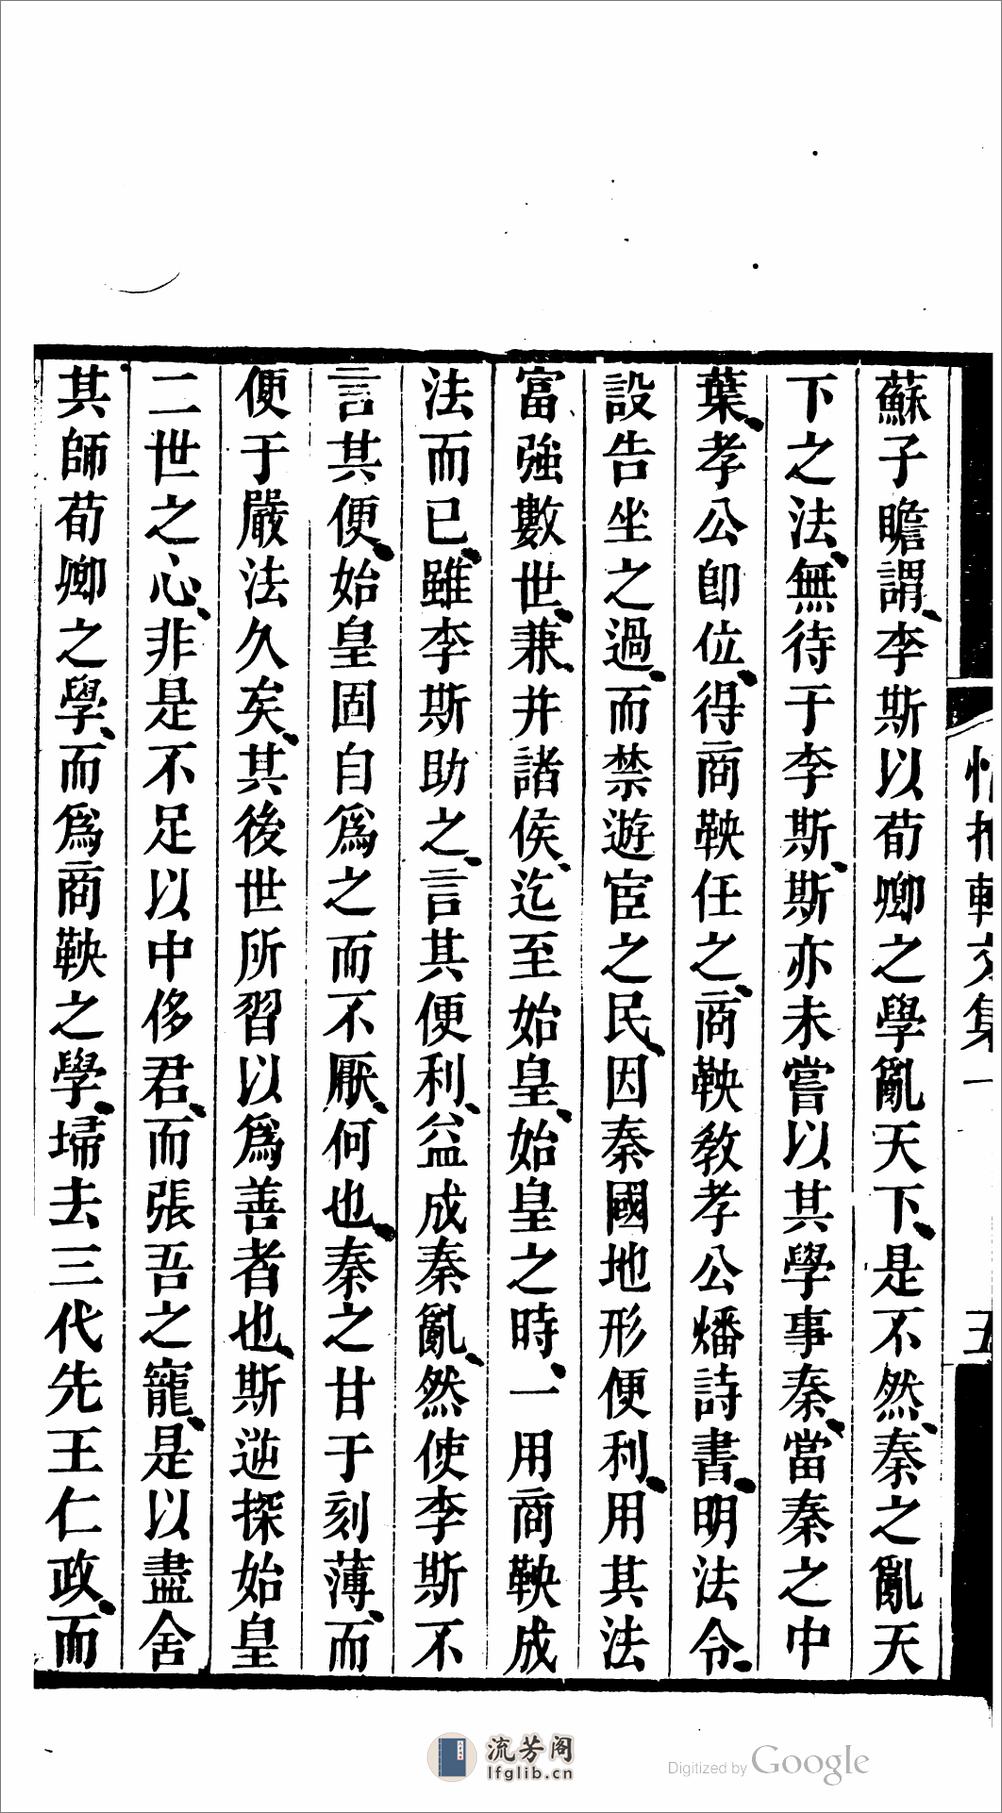 蘇子瞻謂、李斯以荀卿之學亂天下、是不然、秦之亂天
下之法、無待于李斯、斯亦未嘗以其學事秦、當秦之中
葉、孝公卽位、得商鞅任之、商鞅教孝公燔詩書、明法令、
設告坐之過、而禁遊宦之民、因秦國地形便利、用其法
富強數世、兼并諸侯、迄至始皇、始皇之時、一用商鞅成
法而已、雖李斯助之、言其便利、益成秦亂、然使李斯不
言其便、始皇固自爲之而不厭、何也、秦之甘于刻薄、而
便于嚴法久矣、其後世所習以爲善者也、斯逆探始皇
二世之心、非是不足以中侈君、而張吾之寵、是以盡舍
其師荀卿之學、而爲商鞅之學、埽去三代先王仁政、而
惜抱軒文集一
五
流芳阁
lfglib.cn
Digitized by Google